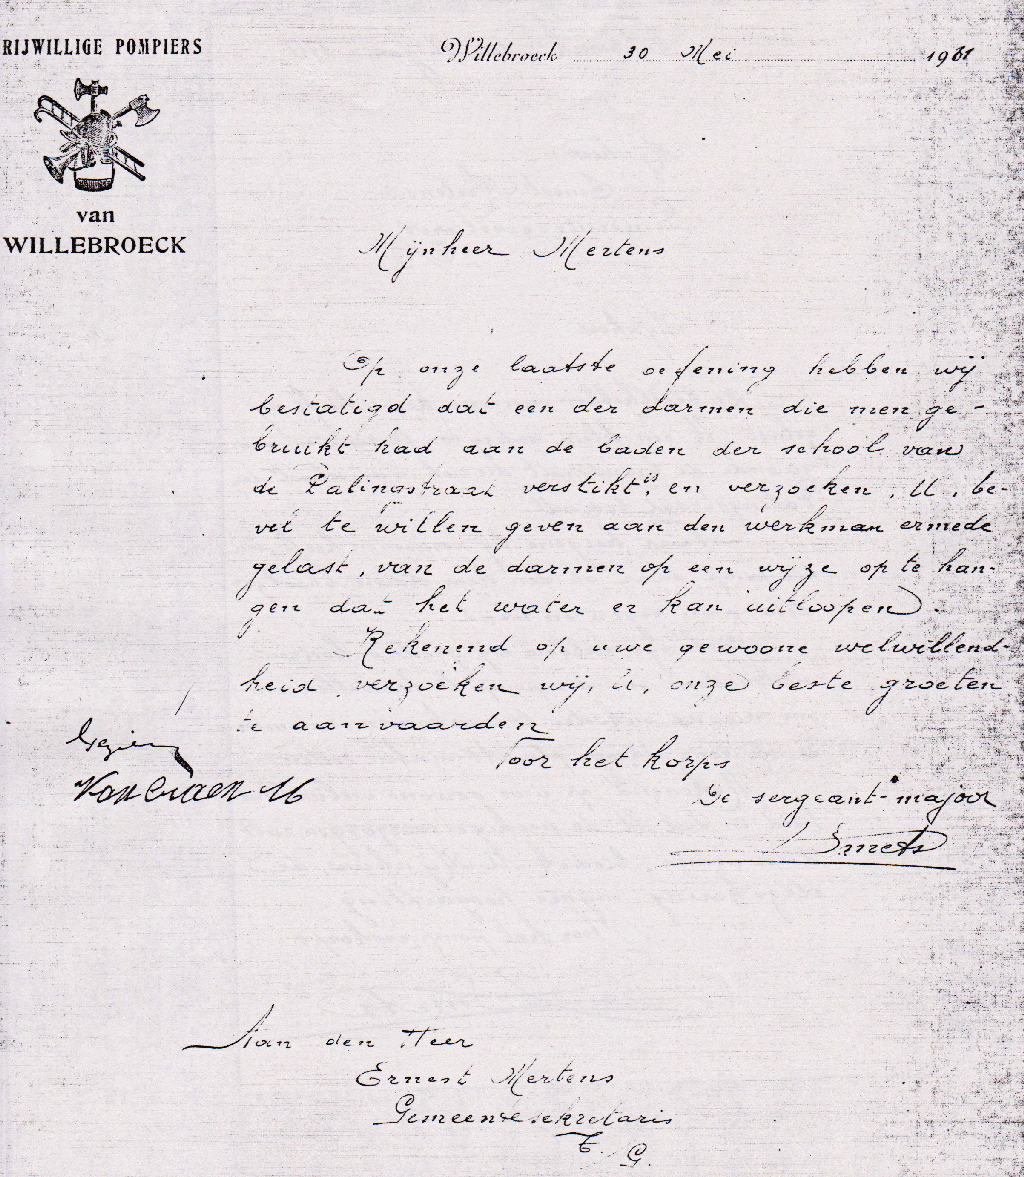 RIJWILLIGE POMPIERS
van
WILLEBROECK
Willebroeck 30 Mei 1931
Mijnheer Mertens
Op onze laatste oefening hebben wij
bestatigd dat een der darmen die men ge-
bruikt had aan de baden der school van
de Palingstraat verstikt is, en verzoeken, U, be-
vel te willen geven aan den werkman ermede
gelast, van de darmen op een wijze op te han-
gen dat het water er kan uitloopen.
Rekenend op uwe gewoone welwillend-
heid verzoeken wij, U, onze beste groeten
te aanvaarden
Voor het korps
De sergeant-majoor
Smets
Gezien
Aan den Heer
Ernest Mertens
Gemeentesekretaris
T. G.